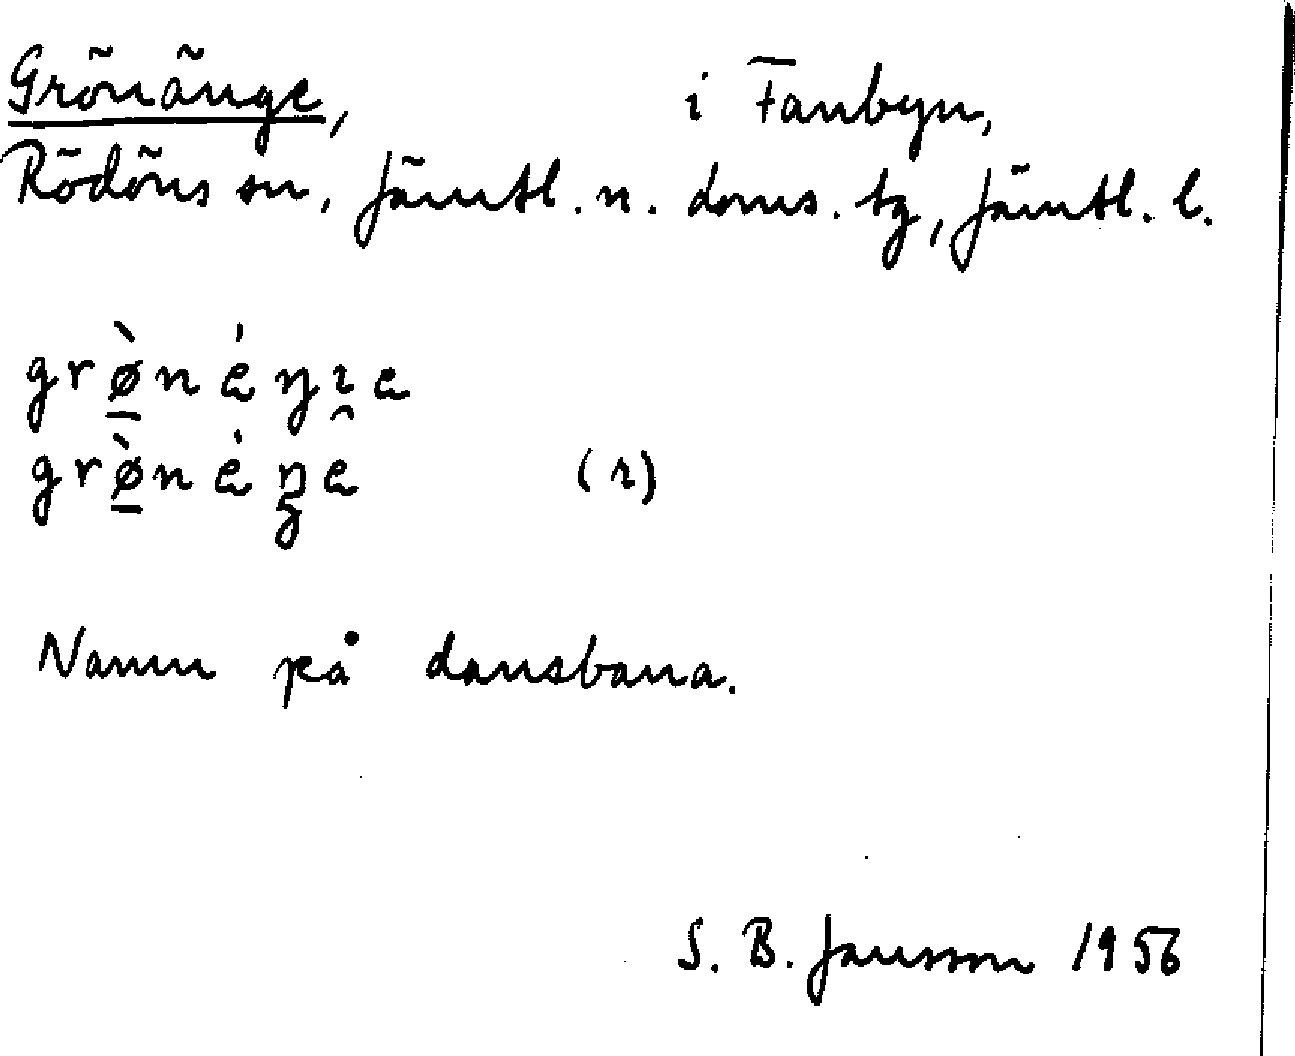 Grönänge, i Fanbyn,
Rödöns sn, Jämtl. n. doms. tg, Jämtl. l.
grø̠̀néŋı̯e
grø̠̀néŋe (r)
Namn på dansbana.
S. B. Jansson 1956